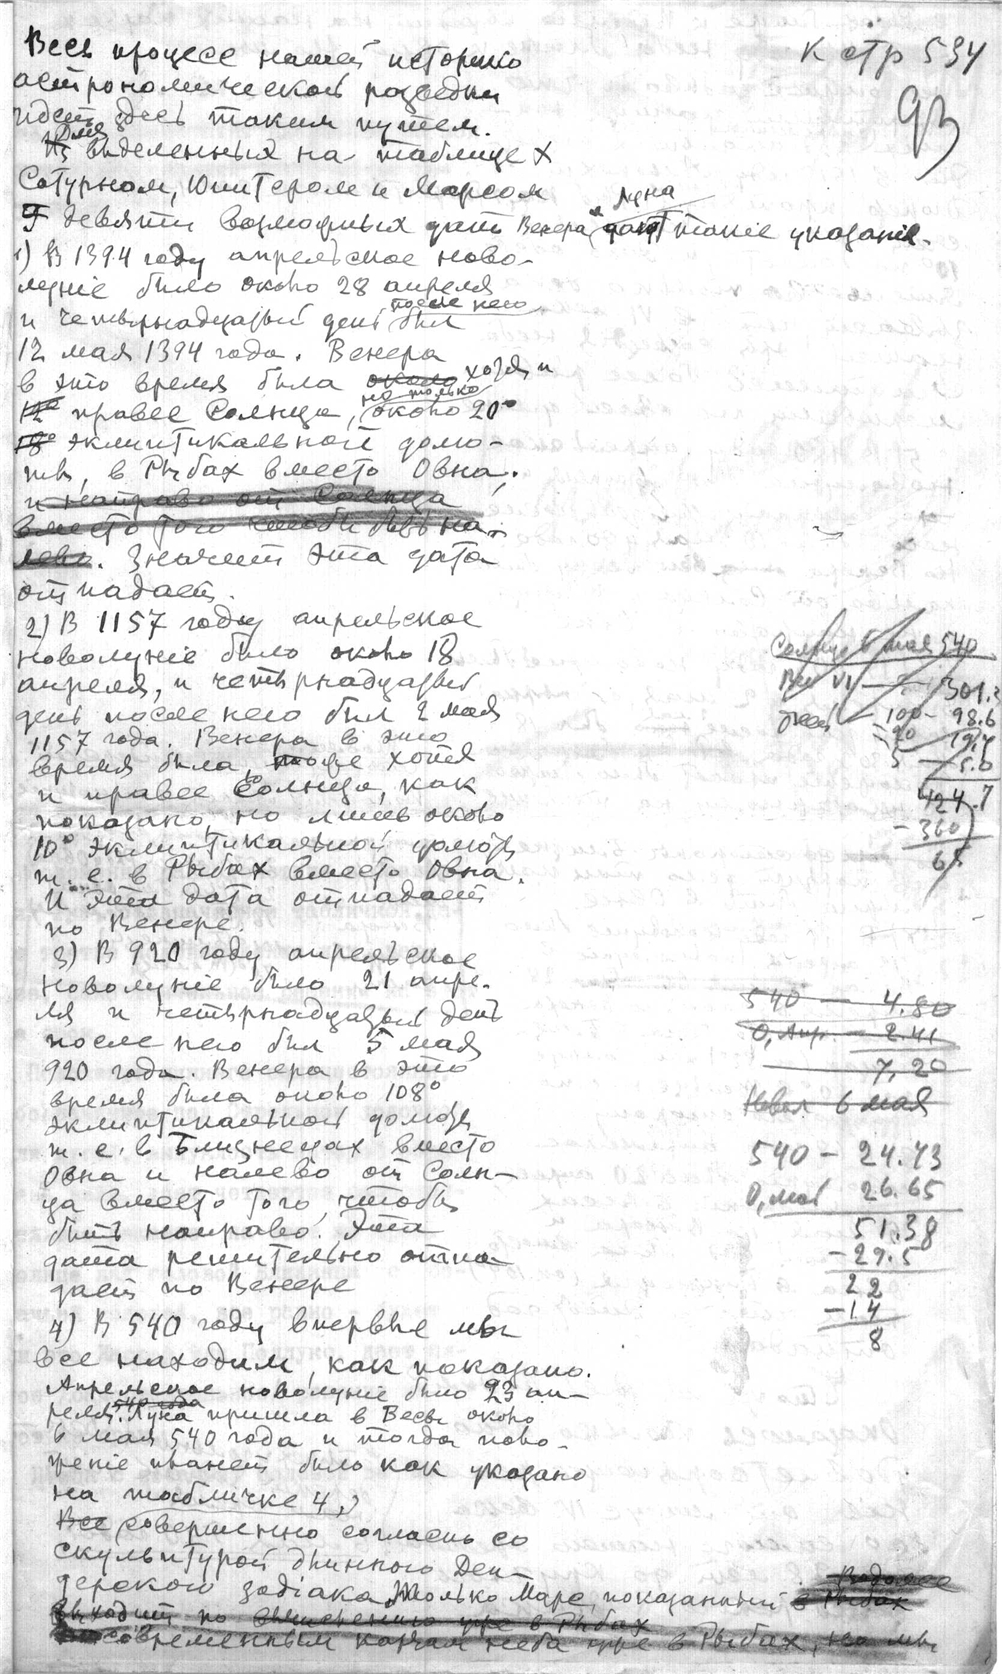 К стр 534
93
Весь процесс нашей историко
астрономической разведки
идет здесь таким путем.
Для выделенных на таблице X
Сатурном, Юпитером и Марсом
девяти возможных дат Венера и Луна дают такие указания.
1) В 1394 году апрельское ново-
луние было около 28 апреля
и четырнадцатый день после него был
12 мая 1394 года. Венера
в это время была около хотя и
правее Солнца, но только около 20°
18° эклиптикальной долго-
ты, в Рыбах вместо Овна.
и направо от Солнца
вместо того чтобы быть на-
лево. Значит эта дата
отпадает.
2) В 1157 году апрельское
новолуние было около 18
апреля, и четырнадцатый
день после него был 2 мая
1157 года. Венера в это
время была тоже хотя
и правее Солнца, как
показано, но лишь около
10° эклиптикальной долготы
т. е. в Рыбах вместо Овна.
И эта дата отпадает
по Венере.
3) В 920 году апрельское
новолуние было 21 апре-
ля и четырнадцатый день
после него был 5 мая
920 года. Венера в это
время была около 108°
эклиптикальной долготы
т. е. в Близнецах вместо
Овна и налево от Солн-
ца вместо того, чтобы
быть направо. Эта
дата решительно отпа-
дает по Венере
4) В 540 году впервые мы
все находим, как показано.
Апрельское новолуние было 23 ап-
реля 540 года. Луна пришла в Весы около
6 мая 540 года и тогда поло-
жение планет было как указано
на табличке 4,
Все совершенно согласно со
скульптурой длинного Ден-
дерского зодиака. Только Марс, показанный в Рыбах Водолее
выходит по вычислению уже в Рыбах
современным картам неба уже в Рыбах, но мы
Солнце 6 мая 540
Век VI — 301.2
100 — 98.6
90 19.7
5 — 5.0
424.7
- 360
65
540 — 4.80
0, Апр. — 2.41
7,20
Новол 6 мая
540 — 24.73
0, май 26.65
51.38
- 29.5
22
- 14
8